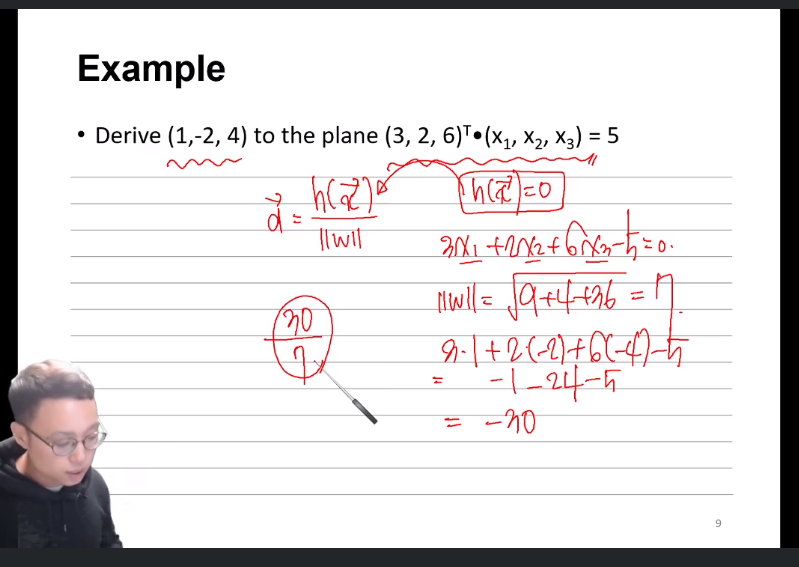 Example
• Derive (1,-2, 4) to the plane (3, 2, 6)ᵀ•(x₁, x₂, x₃) = 5
d⃗ = h(x⃗) / ||w||
h(x⃗)=0
3x₁ +2x₂+6x₃-5=0.
||w||= √9+4+36 = 7.
3·1+2(-2)+6(-4)-5
= -1-24-5
= -30
30/7
9